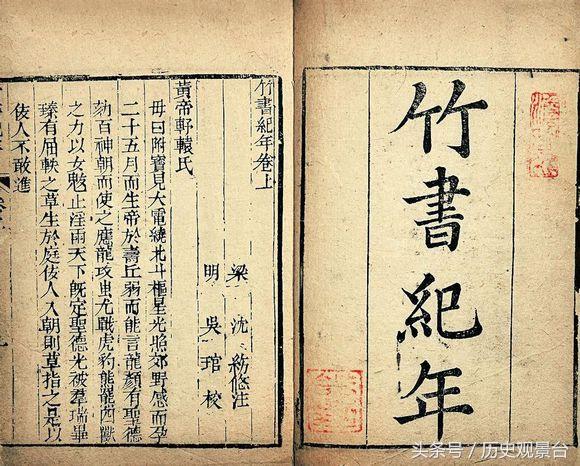 竹書紀年
竹書紀年卷上
梁 沈 約 注
明 吳 琯 校
黃帝軒轅氏
母曰附寶見大電繞北斗樞星光照郊野感而孕
二十五月而生帝於壽丘弱而能言龍顏有聖德
劾百神朝而使之應龍攻蚩尤戰虎豹熊羆四獸
之力以女魃止淫雨天下既定聖德光被羣瑞畢
臻有屈軼之草生於庭佞人入朝則草指之是以
佞人不敢進
头条号 / 历史观景台